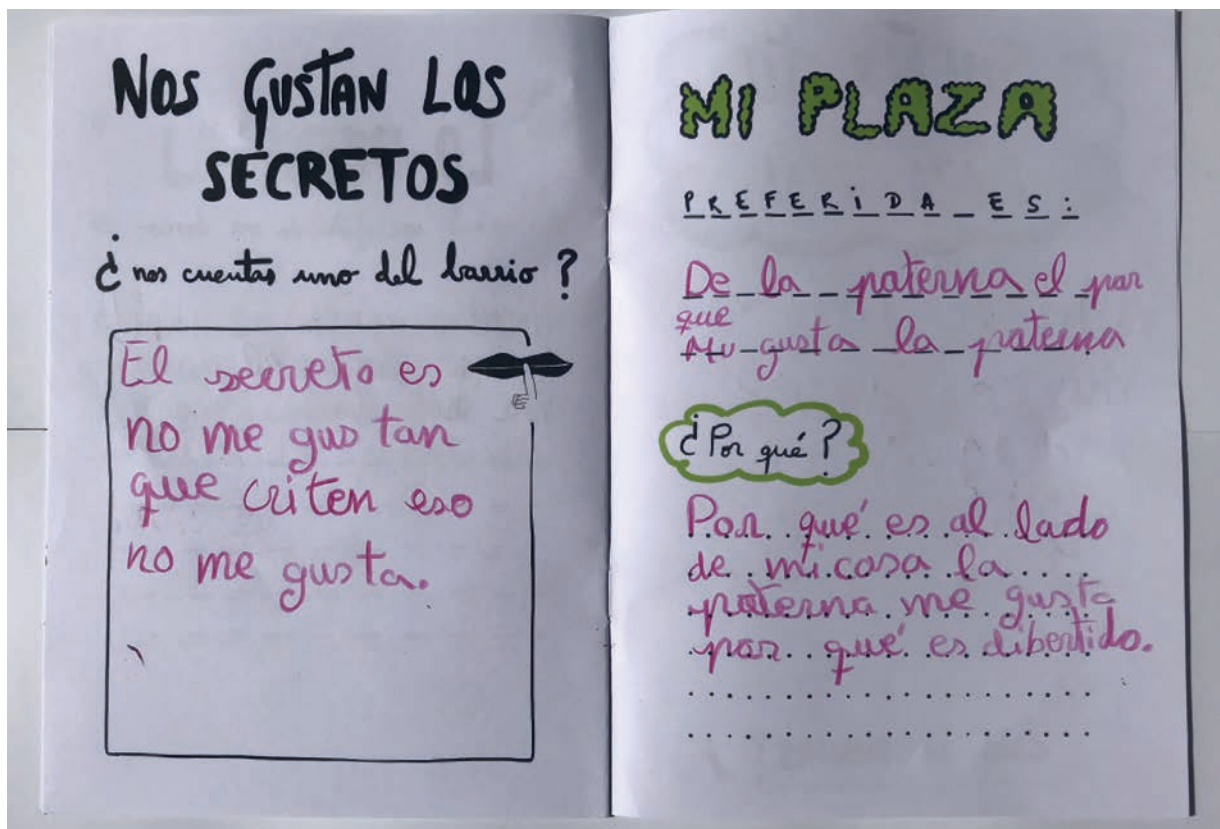 NOS GUSTAN LOS
SECRETOS
¿nos cuentas uno del barrio?
El secreto es
no me gustan
que criten eso
no me gusta.
MI PLAZA
PREFERIDA ES:
De la paterna el par
que
gusta la paterna
¿Por qué?
Por qué es al lado
de mi casa la
paterna me gusta
por qué es dibertido.